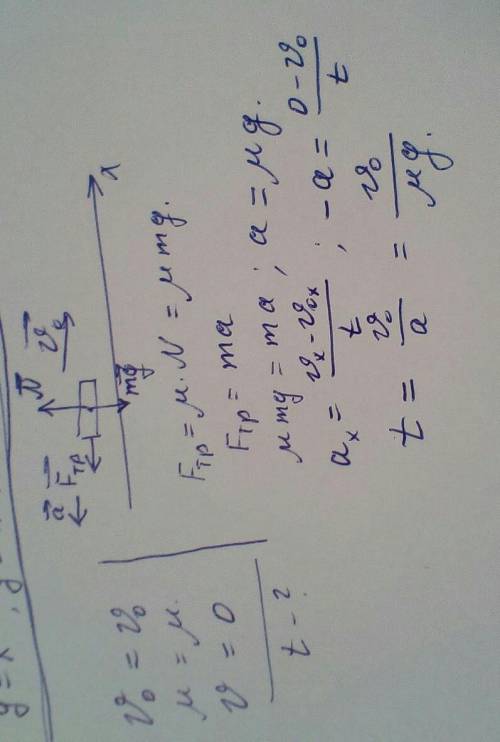 v₀ = v₀
μ = μ
v = 0
t - ?
a⃗ F⃗тр N⃗ v⃗₀
mg⃗ x
Fтр = μ·N = μmg.
Fтр = ma
μmg = ma ; a = μg.
aₓ = (vₓ - v₀ₓ)/t ; -a = (0 - v₀)/t
t = v₀/a = v₀/μg.